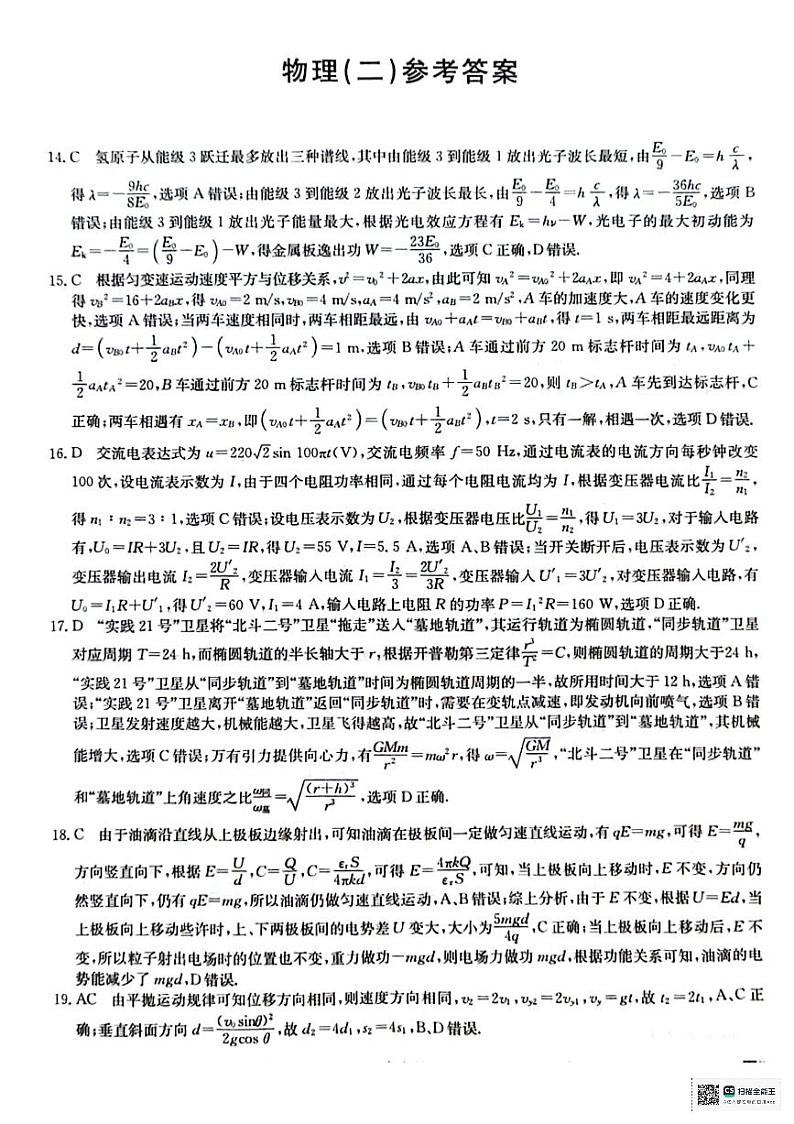 物理(二)参考答案
14. C 氢原子从能级 3 跃迁最多放出三种谱线,其中由能级 3 到能级 1 放出光子波长最短,由E₀/9-E₀=h c/λ,
得 λ=-9hc/8E₀,选项 A 错误;由能级 3 到能级 2 放出光子波长最长,由E₀/9-E₀/4=h c/λ,得 λ=-36hc/5E₀,选项 B
错误;由能级 3 到能级 1 放出光子能量最大,根据光电效应方程有 Eₖ=hν-W,光电子的最大初动能为
Eₖ=-E₀/4=(E₀/9-E₀)-W,得金属板逸出功 W=-23E₀/36,选项 C 正确,D 错误.
15. C 根据匀变速运动速度平方与位移关系,v²=v₀²+2ax,由此可知 vA²=vA0²+2aAx,即 vA²=4+2aAx,同理
得 vB²=16+2aBx,得 vA0=2 m/s,vB0=4 m/s,aA=4 m/s²,aB=2 m/s²,A 车的加速度大,A 车的速度变化更
快,选项 A 错误;当两车速度相同时,两车相距最远,由 vA0+aAt=vB0+aBt,得 t=1 s,两车相距最远距离为
d=(vB0t+1/2aBt²)-(vA0t+1/2aAt²)=1 m,选项 B 错误;A 车通过前方 20 m 标志杆时间为 tA,vA0tA+
1/2aAtA²=20,B 车通过前方 20 m 标志杆时间为 tB,vB0tB+1/2aBtB²=20,则 tB>tA,A 车先到达标志杆,C
正确;两车相遇有 xA=xB,即(vA0t+1/2aAt²)=(vB0t+1/2aBt²),t=2 s,只有一解,相遇一次,选项 D 错误.
16. D 交流电表达式为 u=220√2sin 100πt(V),交流电频率 f=50 Hz,通过电流表的电流方向每秒钟改变
100 次,设电流表示数为 I,由于四个电阻功率相同,通过每个电阻电流均为 I,根据变压器电流比I₁/I₂=n₂/n₁,
得 n₁∶n₂=3∶1,选项 C 错误;设电压表示数为 U₂,根据变压器电压比U₁/U₂=n₁/n₂,得 U₁=3U₂,对于输入电路
有,U₀=IR+3U₂,且 U₂=IR,得 U₂=55 V,I=5.5 A,选项 A、B 错误;当开关断开后,电压表示数为 U'₂,
变压器输出电流 I₂=2U'₂/R,变压器输入电流 I₁=I₂/3=2U'₂/3R,变压器输入 U'₁=3U'₂,对变压器输入电路,有
U₀=I₁R+U'₁,得 U'₂=60 V,I₁=4 A,输入电路上电阻 R 的功率 P=I₁²R=160 W,选项 D 正确.
17. D “实践 21 号”卫星将“北斗二号”卫星“拖走”送入“墓地轨道”,其运行轨道为椭圆轨道,“同步轨道”卫星
对应周期 T=24 h,而椭圆轨道的半长轴大于 r,根据开普勒第三定律r³/T²=C,则椭圆轨道的周期大于24 h,
“实践 21 号”卫星从“同步轨道”到“墓地轨道”时间为椭圆轨道周期的一半,故所用时间大于 12 h,选项 A 错
误;“实践 21 号”卫星离开“墓地轨道”返回“同步轨道”时,需要在变轨点减速,即发动机向前喷气,选项 B 错
误;卫星发射速度越大,机械能越大,卫星飞得越高,故“北斗二号”卫星从“同步轨道”到“墓地轨道”,其机械
能增大,选项 C 错误;万有引力提供向心力,有GMm/r²=mω²r,得 ω=√(GM/r³),“北斗二号”卫星在“同步轨道”
和“墓地轨道”上角速度之比ω同/ω墓=√((r+h)³/r³),选项 D 正确.
18. C 由于油滴沿直线从上极板边缘射出,可知油滴在极板间一定做匀速直线运动,有 qE=mg,可得 E=mg/q,
方向竖直向下,根据 E=U/d,C=Q/U,C=εᵣS/4πkd,可得 E=4πkQ/εᵣS,可知,当上极板向上移动时,E 不变,方向仍
然竖直向下,仍有 qE=mg,所以油滴仍做匀速直线运动,A、B 错误;综上分析,由于 E 不变,根据 U=Ed,当
上极板向上移动些许时,上、下两极板间的电势差 U 变大,大小为5mgd/4q,C 正确;当上极板向上移动后,E 不
变,所以粒子射出电场时的位置也不变,重力做功-mgd,则电场力做功 mgd,根据功能关系可知,油滴的电
势能减少了 mgd,D 错误.
19. AC 由平抛运动规律可知位移方向相同,则速度方向相同,v₂=2v₁,vy2=2vy1,vy=gt,故 t₂=2t₁,A、C 正
确;垂直斜面方向 d=(v₀sinθ)²/2gcos θ,故 d₂=4d₁,s₂=4s₁,B、D 错误.
CS 扫描全能王